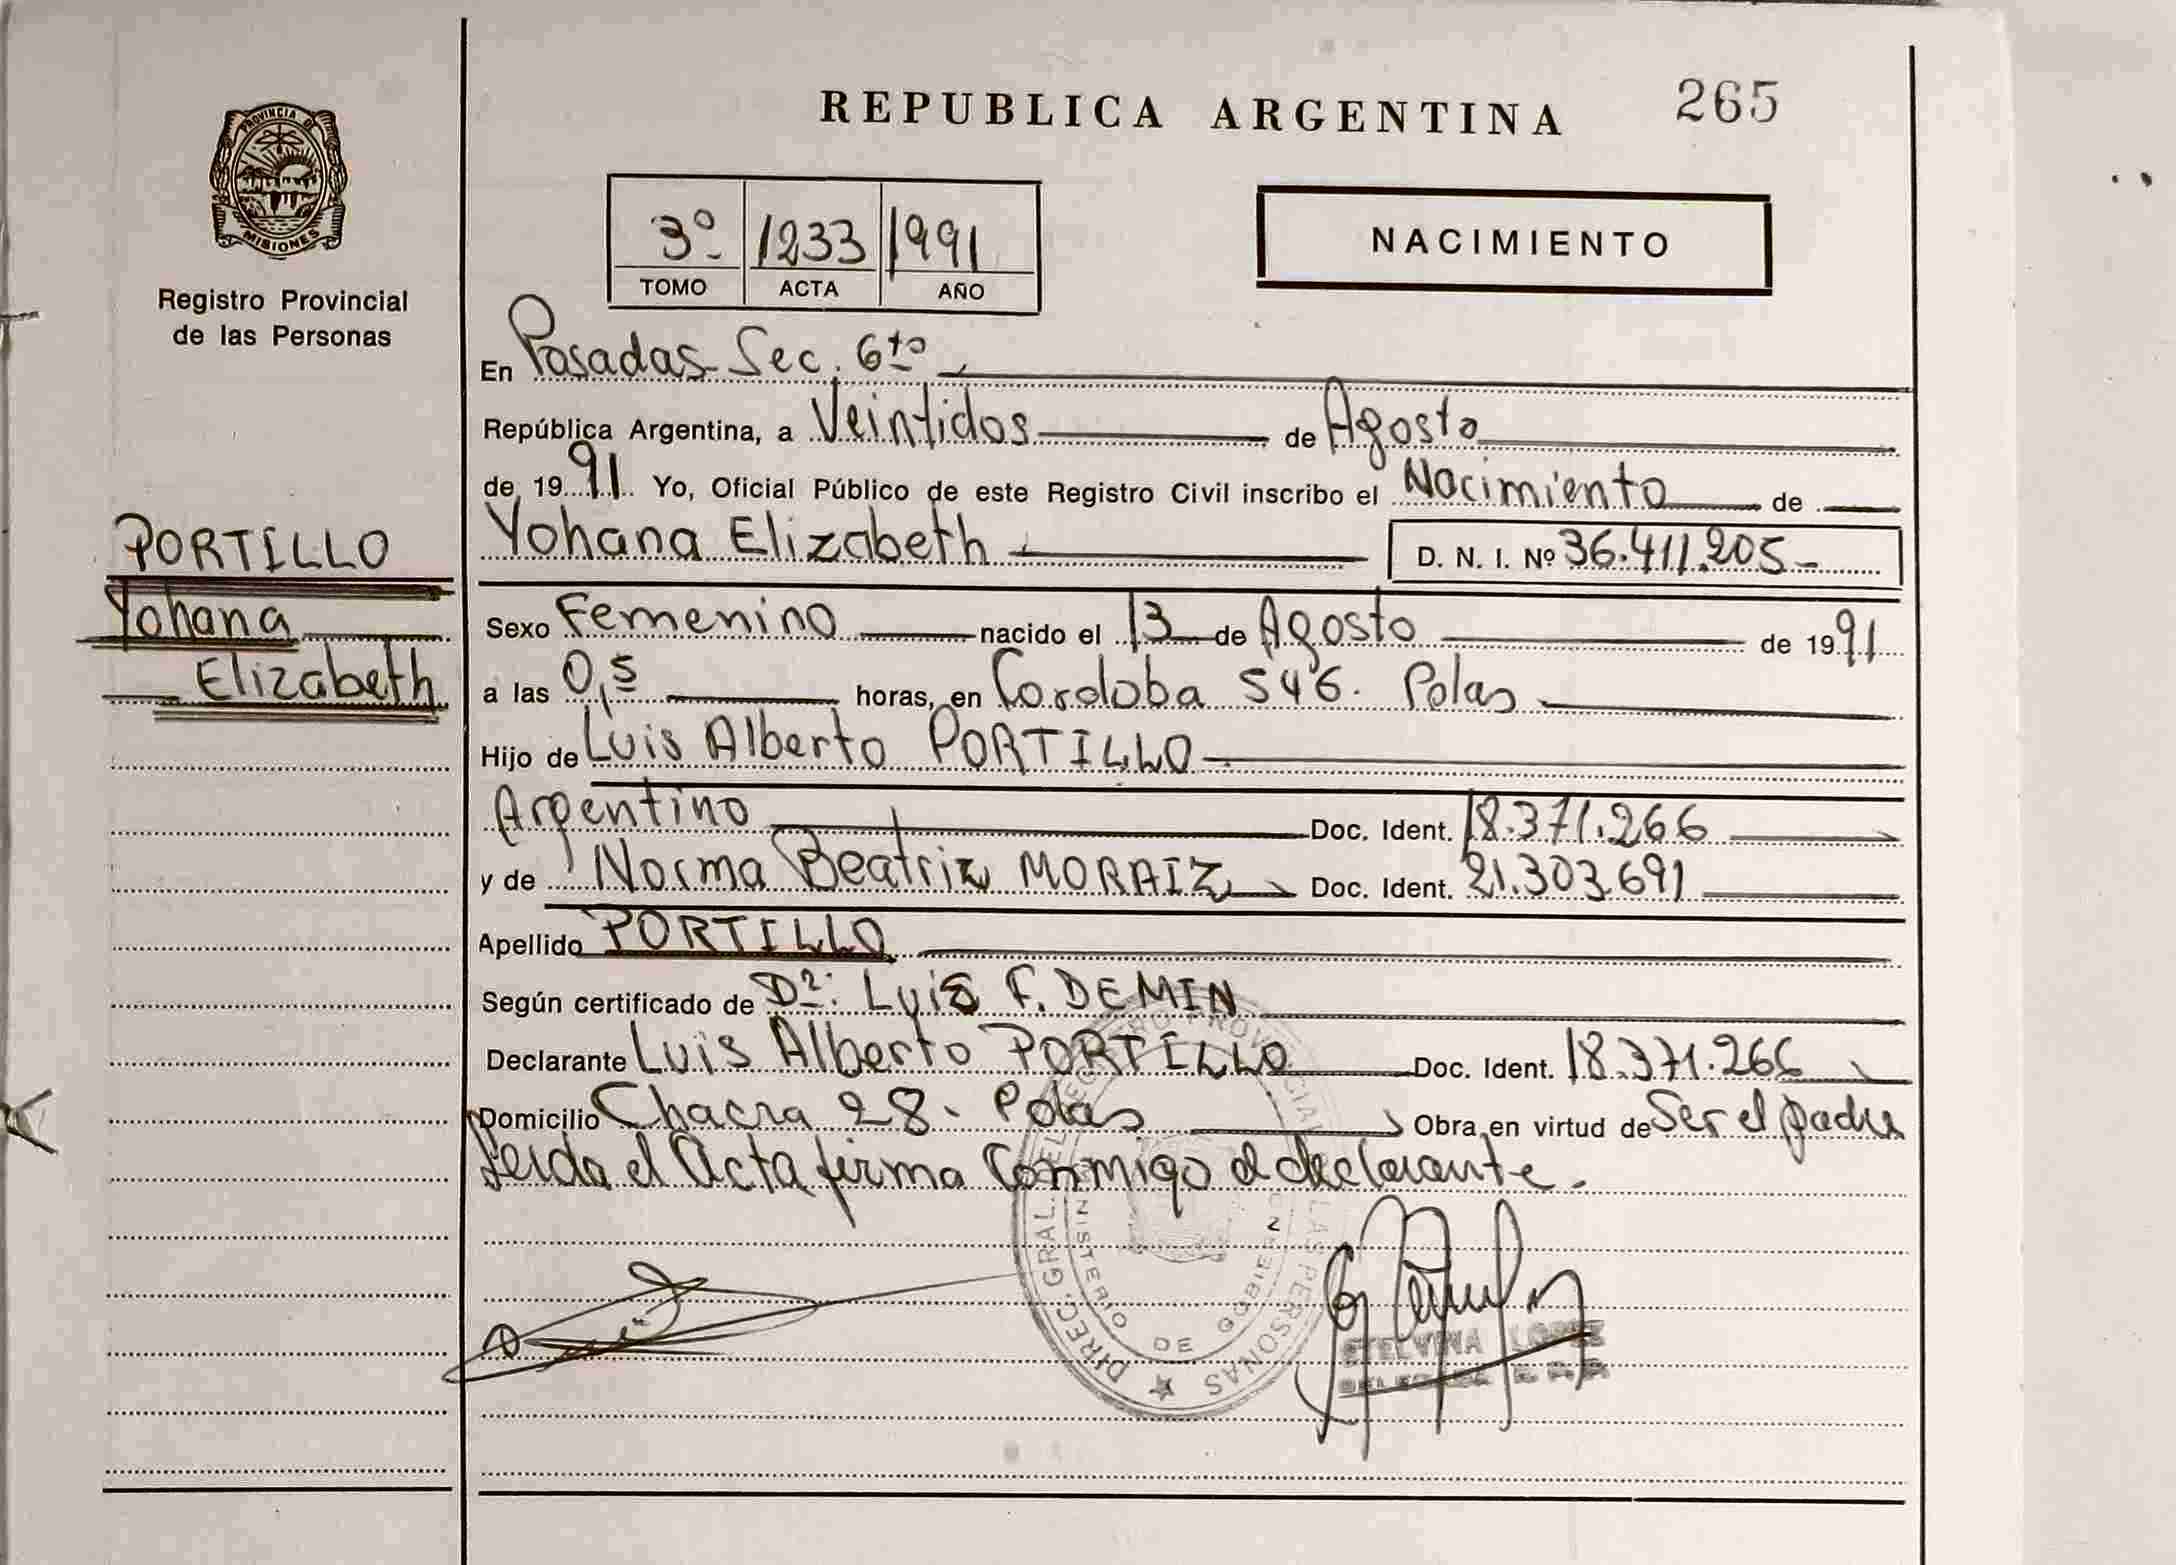 REPUBLICA ARGENTINA 265
PROVINCIA D
MISIONES
Registro Provincial
de las Personas
3º 1233 1991
TOMO ACTA AÑO
NACIMIENTO
En Posadas Sec. 6to
República Argentina, a Veintidos de Agosto
de 1991 Yo, Oficial Público de este Registro Civil inscribo el Nacimiento de
PORTILLO
Yohana
Elizabeth
Yohana Elizabeth D. N. I. Nº 36.411.205-
Sexo Femenino nacido el 13 de Agosto de 1991
a las 0,5 horas, en Cordoba 546. Pdas
Hijo de Luis Alberto PORTILLO
Argentino Doc. Ident. 18.371.266
y de Norma Beatriz MORAIZ Doc. Ident. 21.303.691
Apellido PORTILLO
Según certificado de Dr: Luis F. DEMIN
Declarante Luis Alberto PORTILLO Doc. Ident. 18.371.266
Domicilio Chacra 28- Pdas Obra en virtud de Ser el padre
Leida el Acta firma Conmigo el declarante.
DIREC. GRAL. DEL REGISTRO PROVINCIAL DE LAS PERSONAS
MINISTERIO DE GOBIERNO
ETELVINA LOPEZ